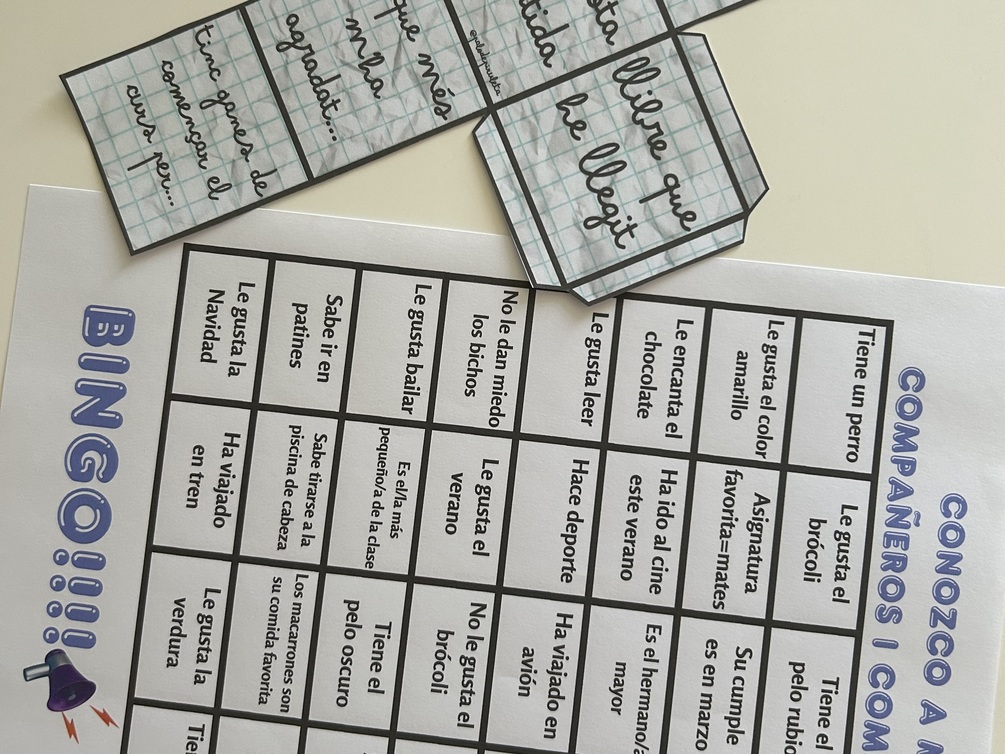 tinc ganes de
començar el
curs per...
que més
mha
agradat...
sta
tida
llibre que
he llegit
CONOZCO A
COMPAÑEROS I COM
Tiene un perro
Le gusta el
brócoli
Tiene el
pelo rubio
Le gusta el color
amarillo
Asignatura
favorita=mates
Su cumple
es en marzo
Le encanta el
chocolate
Ha ido al cine
este verano
Es el hermano/a
mayor
Le gusta leer
Hace deporte
Ha viajado en
avión
No le dan miedo
los bichos
Le gusta el
verano
No le gusta el
brócoli
Le gusta bailar
Es el/la más
pequeño/a de la clase
Tiene el
pelo oscuro
Sabe ir en
patines
Sabe tirarse a la
piscina de cabeza
Los macarrones son
su comida favorita
Le gusta la
Navidad
Ha viajado
en tren
Le gusta la
verdura
Tie
BINGO!!!!!